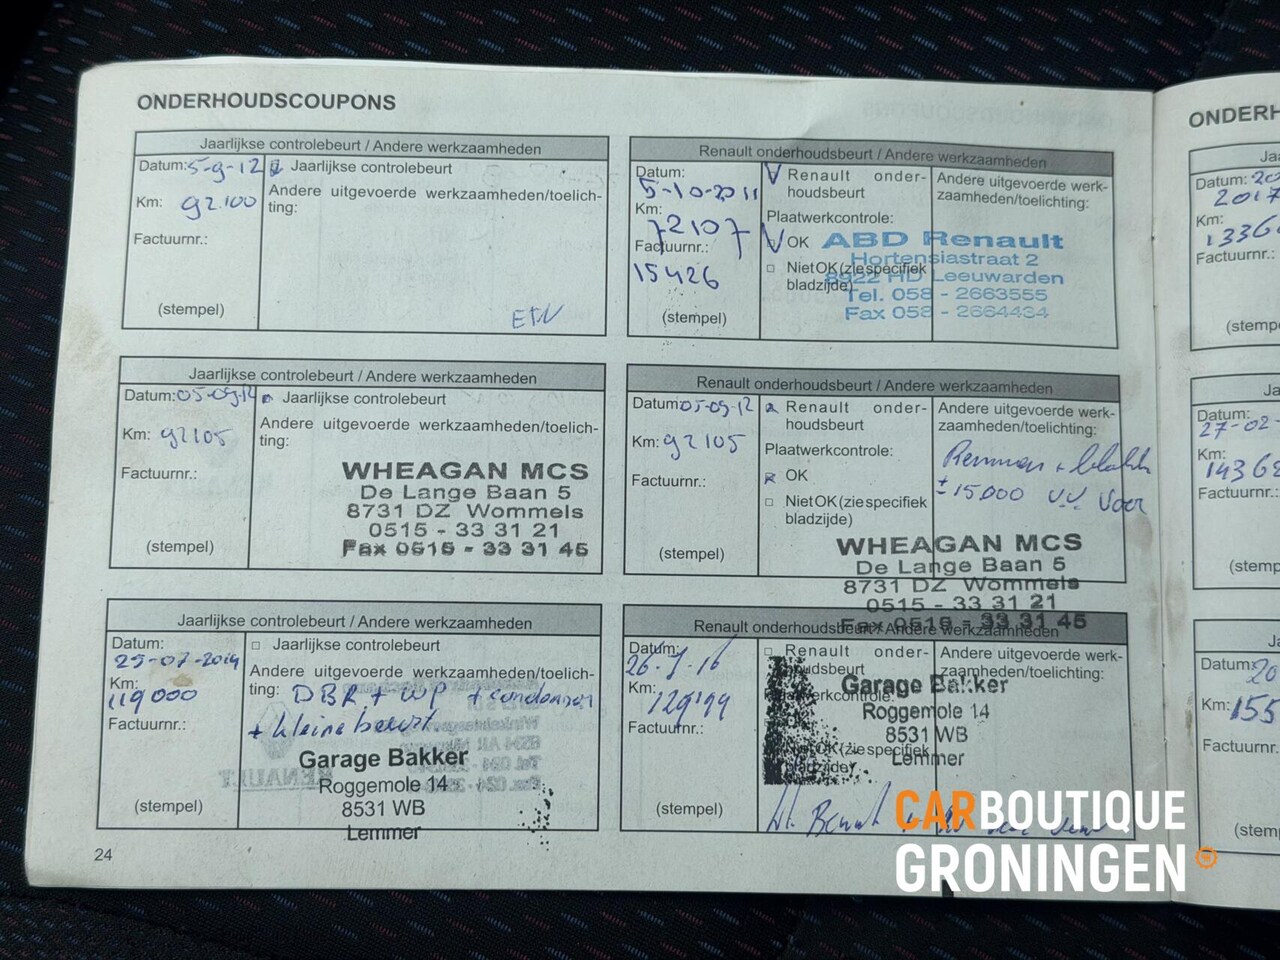 ONDERHOUDSCOUPONS
Jaarlijkse controlebeurt / Andere werkzaamheden
Datum: 5-9-12
Jaarlijkse controlebeurt
Km: 92.100
Andere uitgevoerde werkzaamheden/toelich-
ting:
Factuurnr.:
(stempel)
Renault onderhoudsbeurt / Andere werkzaamheden
Datum:
5-10-2011
Km:
72107
Factuurnr.:
15426
(stempel)
V Renault onder-
houdsbeurt
Plaatwerkcontrole:
V OK
Niet OK (zie specifiek
bladzijde)
Andere uitgevoerde werk-
zaamheden/toelichting:
ABD Renault
Hortensiastraat 2
8922 HD Leeuwarden
Tel. 058 - 2663555
Fax 058 - 2664434
Jaarlijkse controlebeurt / Andere werkzaamheden
Datum: 05-09-12
Jaarlijkse controlebeurt
Km: 92105
Andere uitgevoerde werkzaamheden/toelich-
ting:
Factuurnr.:
(stempel)
WHEAGAN MCS
De Lange Baan 5
8731 DZ Wommels
0515 - 33 31 21
Fax 0515 - 33 31 45
Renault onderhoudsbeurt / Andere werkzaamheden
Datum: 05-09-12
Km: 92105
Factuurnr.:
(stempel)
Renault onder-
houdsbeurt
Plaatwerkcontrole:
OK
Niet OK (zie specifiek
bladzijde)
Andere uitgevoerde werk-
zaamheden/toelichting:
Remmen + blokken
± 15.000 v.v. voor
WHEAGAN MCS
De Lange Baan 5
8731 DZ Wommels
0515 - 33 31 21
Fax 0515 - 33 31 45
Jaarlijkse controlebeurt / Andere werkzaamheden
Datum:
25-07-2014
Km:
119000
Factuurnr.:
(stempel)
Jaarlijkse controlebeurt
Andere uitgevoerde werkzaamheden/toelich-
ting: DBR + WP + condensor
+ kleine beurt.
Garage Bakker
Roggemole 14
8531 WB
Lemmer
Renault onderhoudsbeurt / Andere werkzaamheden
Datum:
Km:
Factuurnr.:
(stempel)
Renault onder-
houdsbeurt
Niet OK (zie specifiek
bladzijde)
Andere uitgevoerde werk-
zaamheden/toelichting:
Garage Bakker
Roggemole 14
8531 WB
Lemmer
24
ONDERH
Datum: 20
2017
Km:
Factuurnr.:
(stemp
Datum:
27-02-
Km:
Factuurnr.:
(stemp
Datum: 20
Km: 155
Factuurnr.:
(stem
CARBOUTIQUE
GRONINGEN